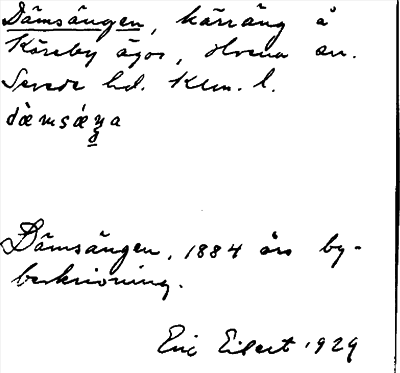 Dämsängen, kärräng å
Käreby ägor, sn.
Sevede hd. Klm. l.
Dämsängen, 1884 års by-
beskrivning.
Eric Eilert 1929